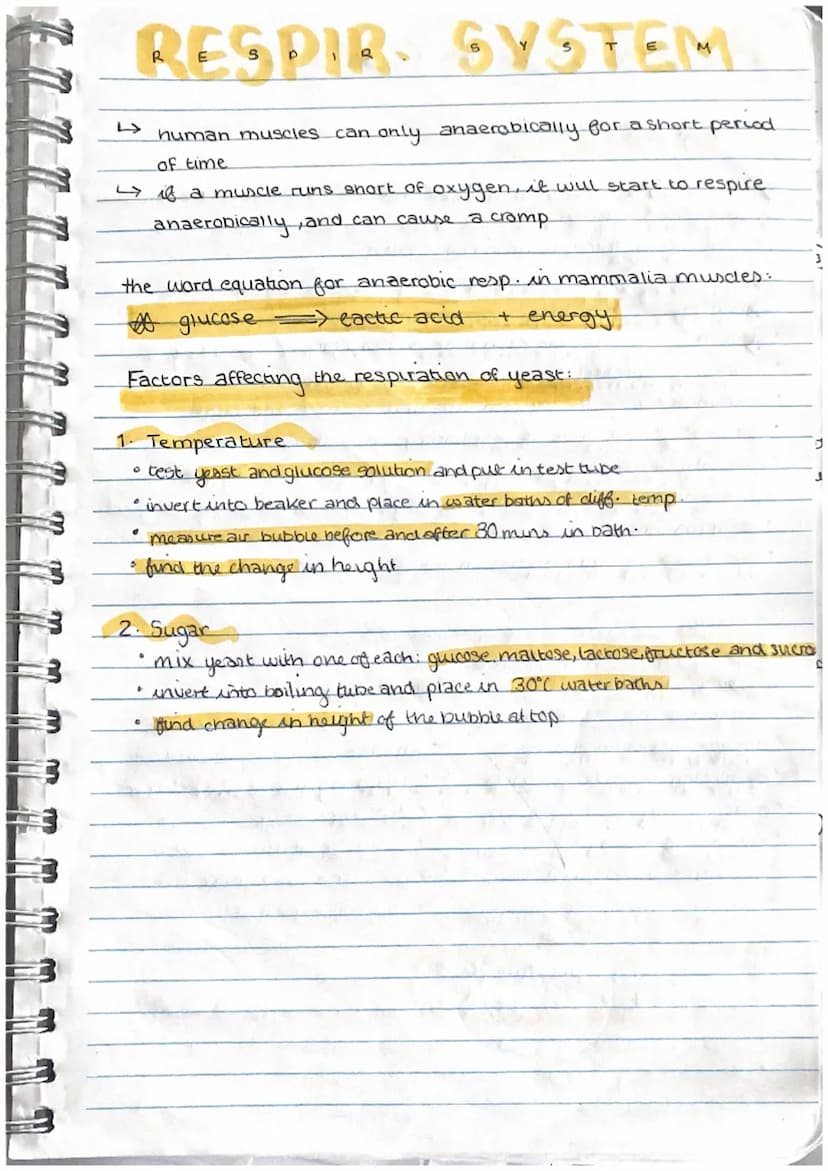 RESPIR. SYSTEM
↳ human muscles can only anaerobically for a short period
of time
↳ if a muscle runs short of oxygen, it will start to respire
anaerobically, and can cause a cramp
the word equation for anaerobic resp. in mammalia muscles:
glucose ⟹ lactic acid + energy
Factors affecting the respiration of yeast:
1. Temperature
• test yeast and glucose solution and put in test tube
• invert into beaker and place in water baths of diff. temp.
• measure air bubble before and after 30 mins in bath.
• find the change in height
2. Sugar
• mix yeast with one of each: glucose, maltose, lactose, fructose and sucro
• invert into boiling tube and place in 30°C water baths
• find change in height of the bubble at top